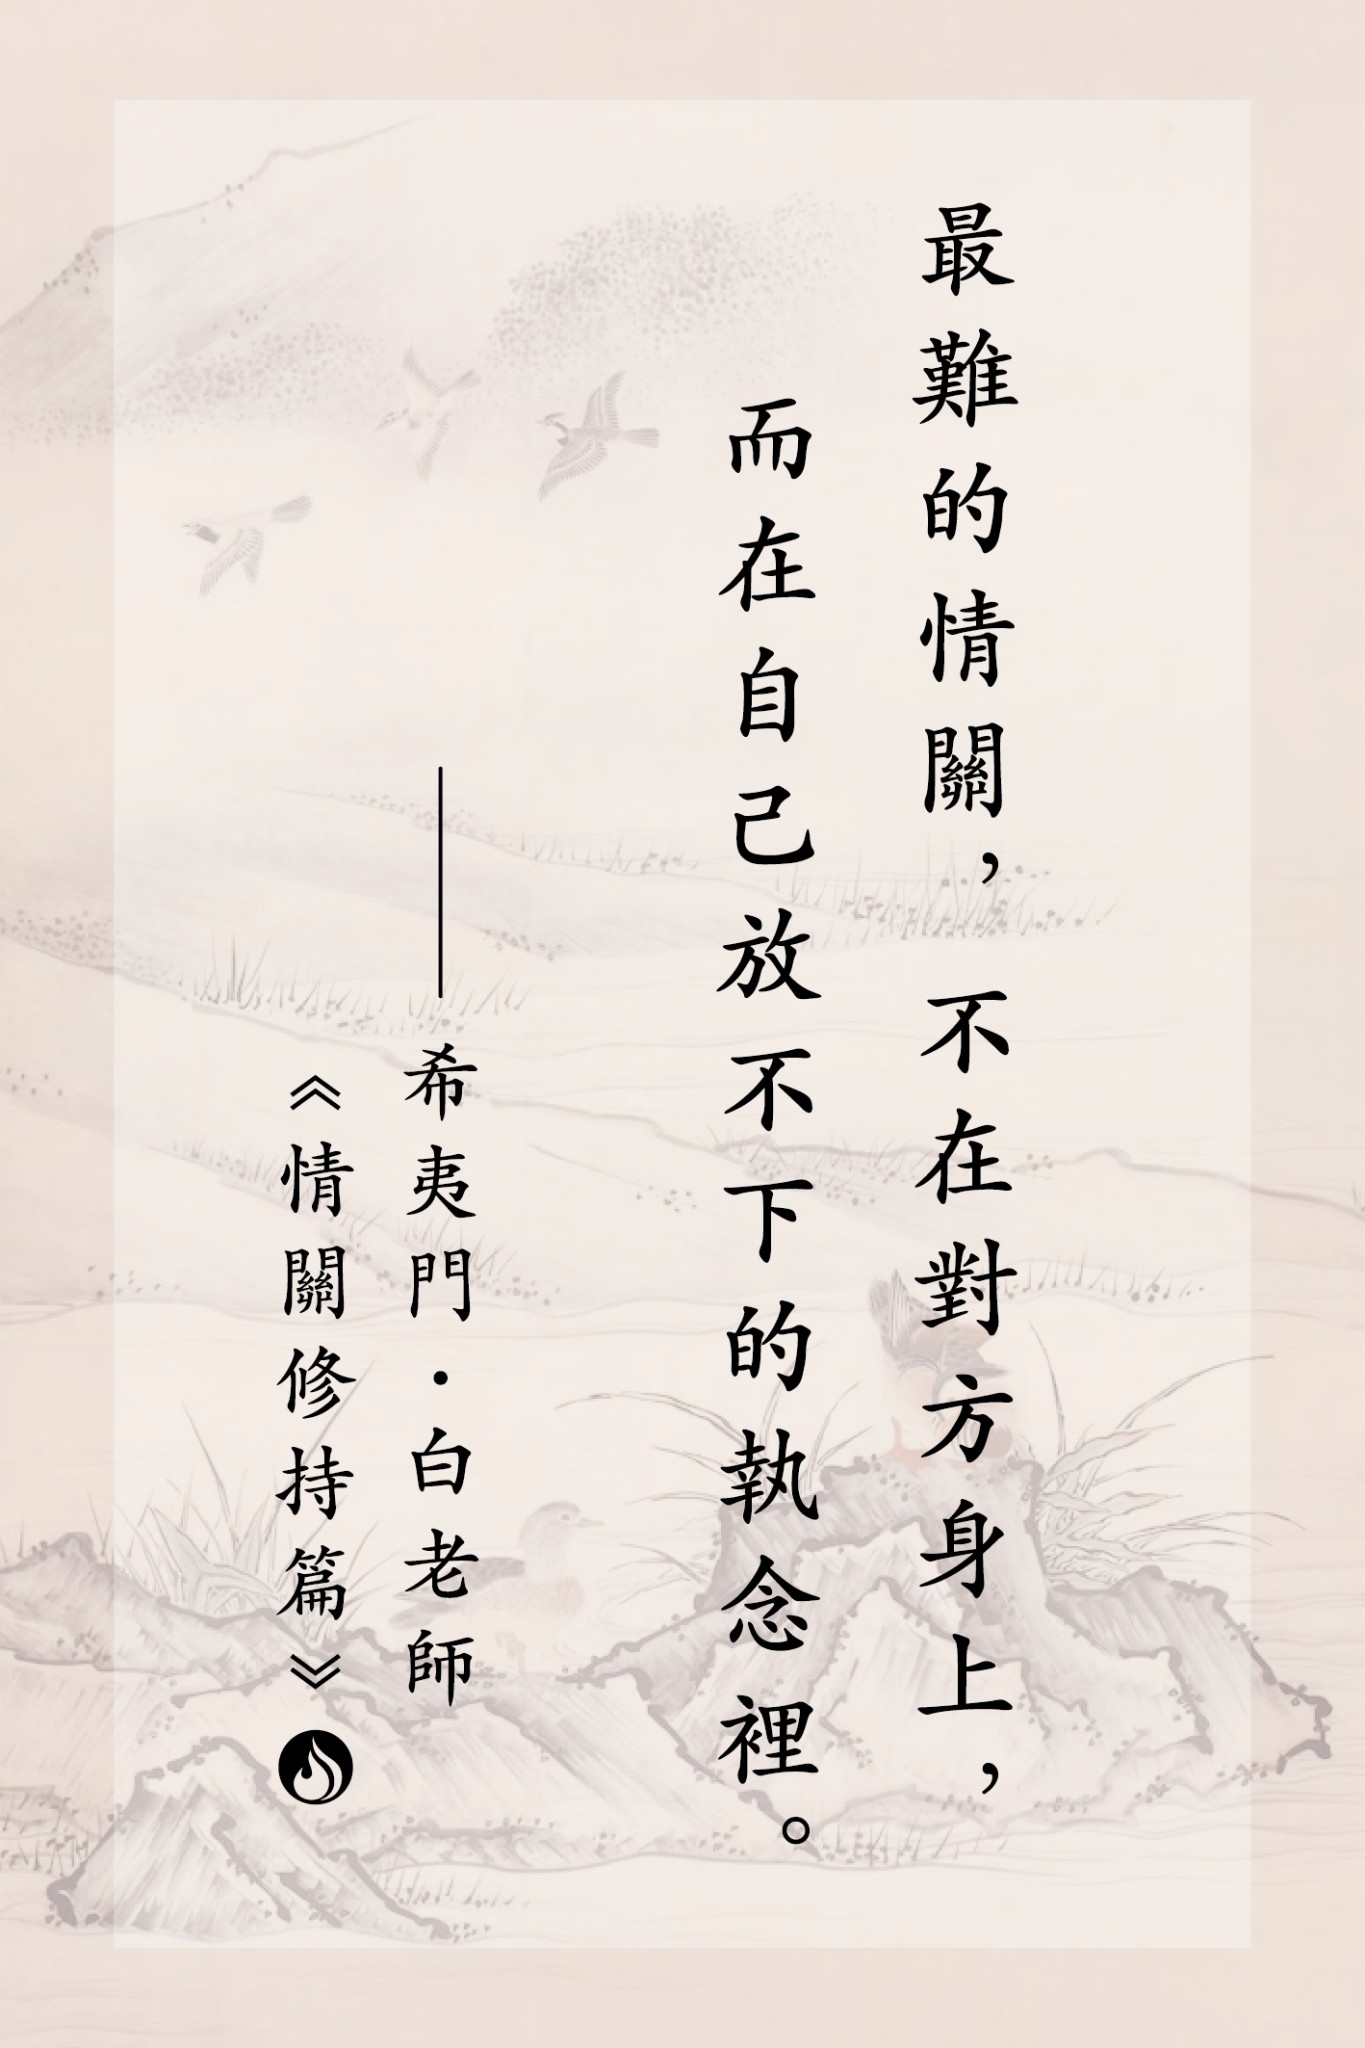 最難的情關，不在對方身上，
而在自己放不下的執念裡。
——希夷門·白老師
《情關修持篇》